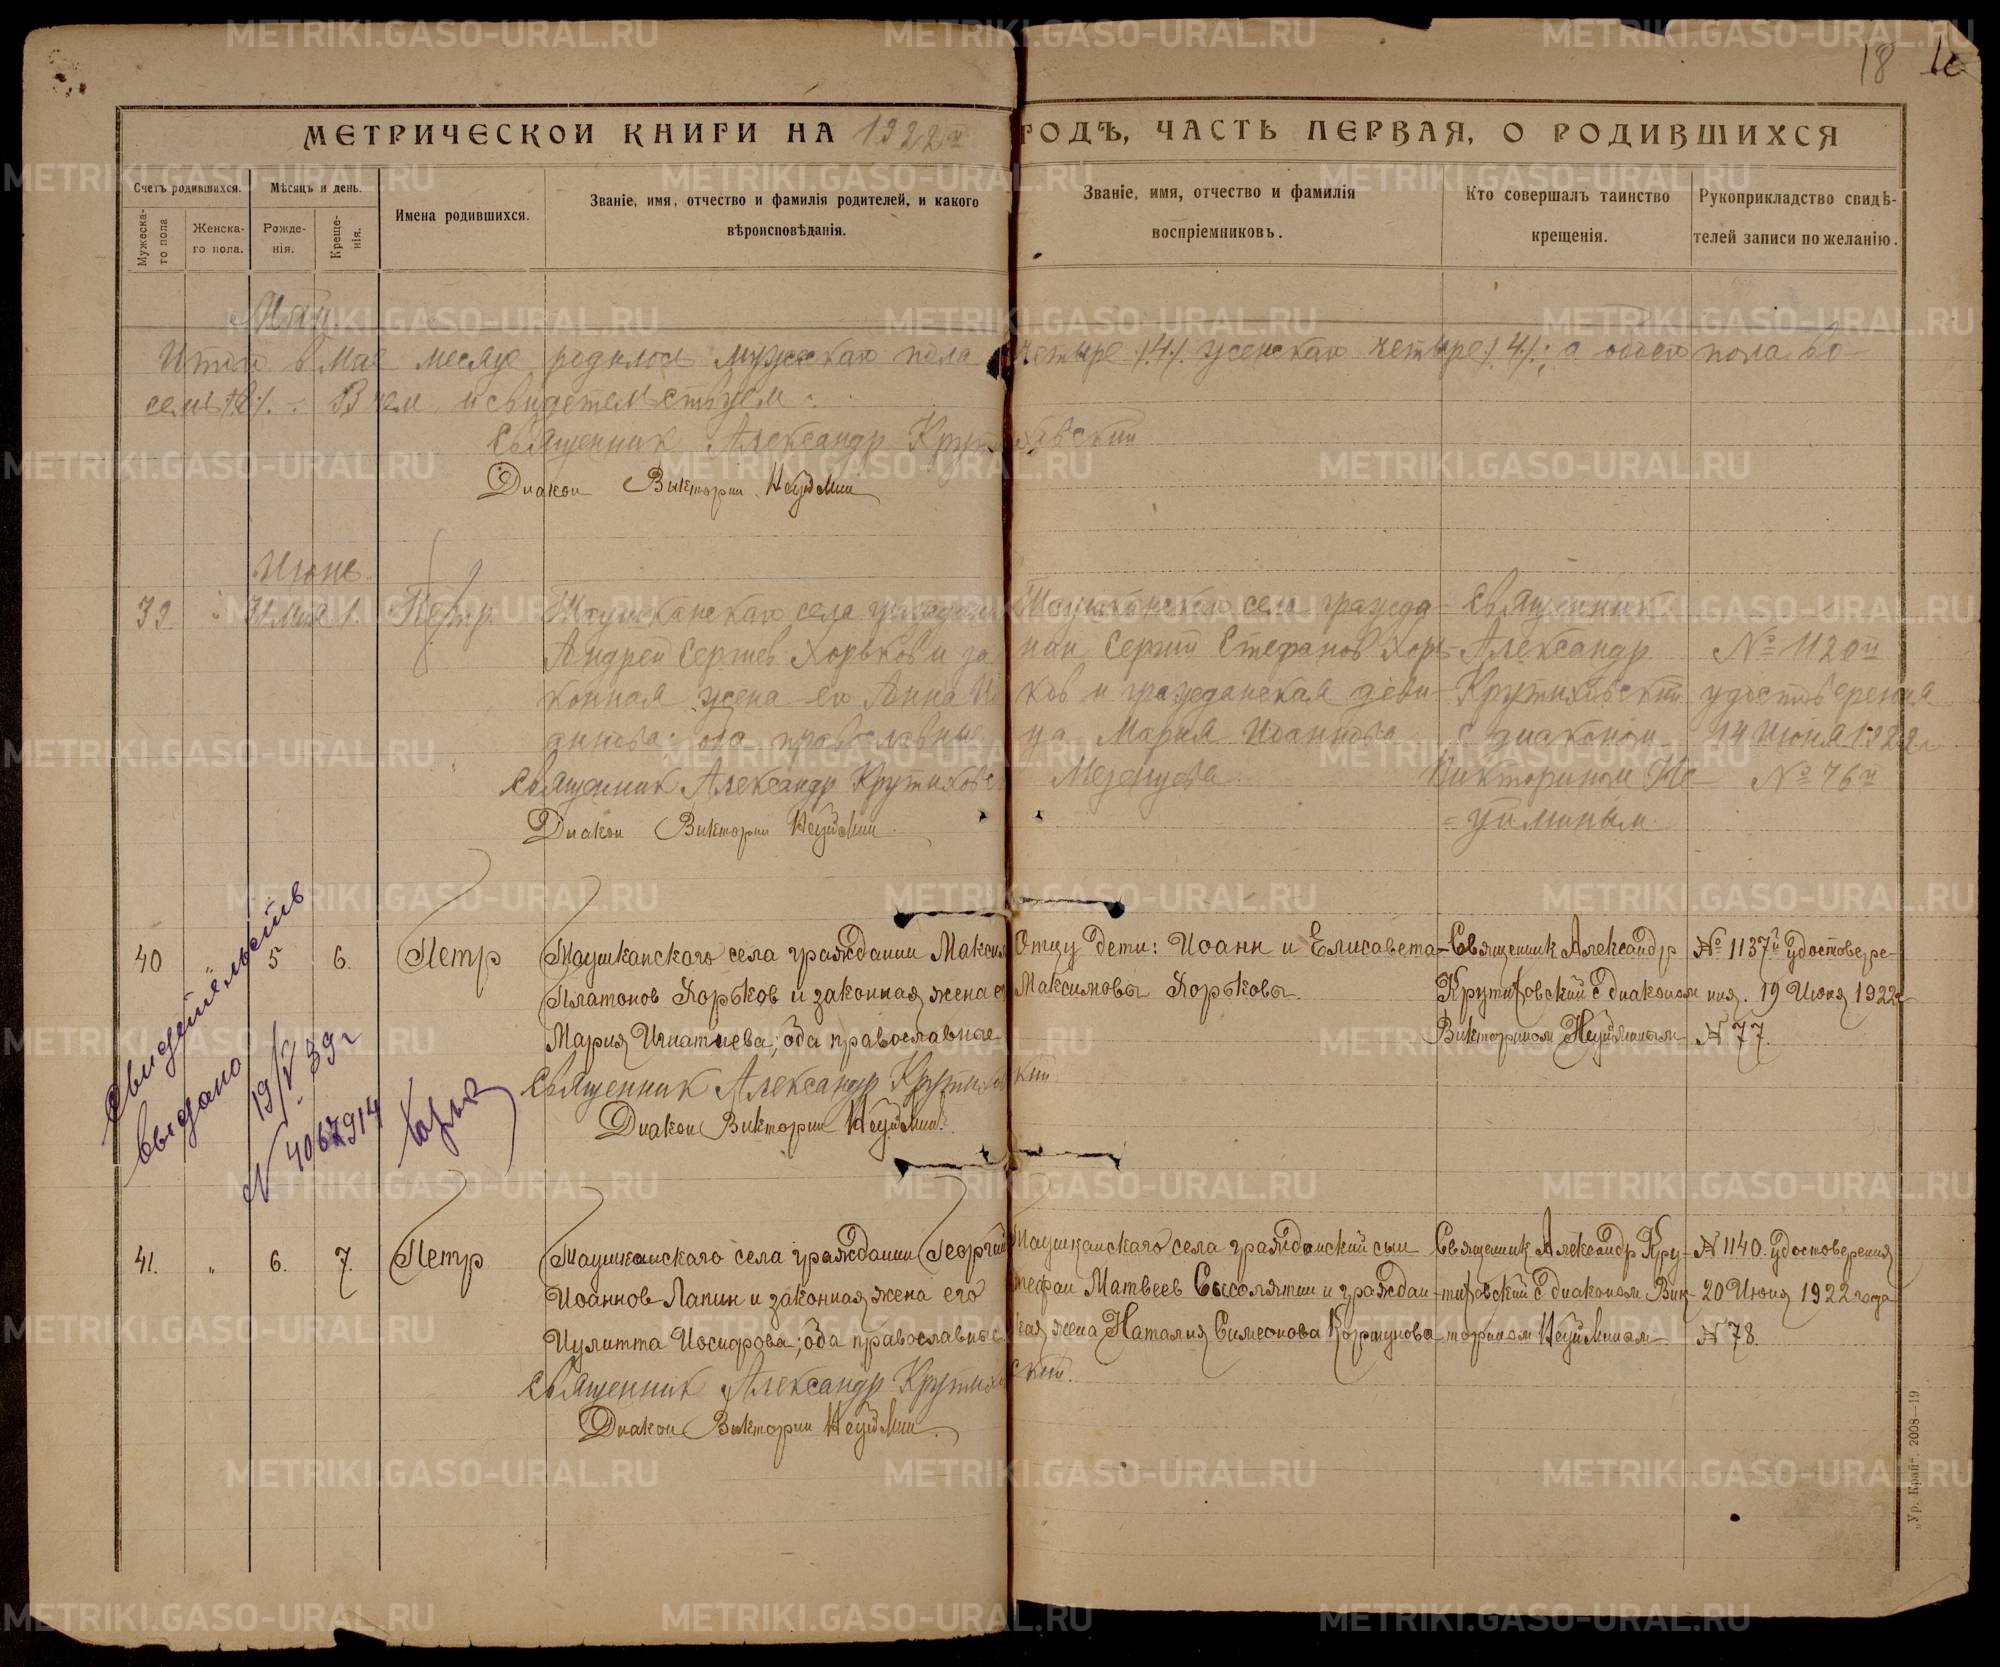 18
МЕТРИЧЕСКОЙ КНИГИ НА 1922й ГОДЪ, ЧАСТЬ ПЕРВАЯ, О РОДИВШИХСЯ
Счетъ родившихся.
Мѣсяцъ и день.
Мужеска-
го пола
Женска-
го пола.
Рожде-
нія.
Креще-
нія.
Имена родившихся.
Званіе, имя, отчество и фамилія родителей, и какого
вѣроисповѣданія.
Званіе, имя, отчество и фамилія
воспріемниковъ.
Кто совершалъ таинство
крещенія.
Рукоприкладство свидѣ-
телей записи по желанію.
Май.
Итого в мае месяце родилось мужскаго пола четыре /.4./. женскаго четыре /.4./.; а обоего пола во-
семь /.8./. - В чем и свидетельствуем:
Священник Александр Крутиховский
Диакон Викторин Неуймин
Июнь.
39.
31 мая
1.
Петр.
Маушканскаго села гражданин
Андрей Сергиев Хорьков и за
конная жена его Анна
оба православные.
Священник Александр Крутиховс
Диакон Викторин Неуймин.
Маушканскаго села гражда-
нин Сергий Стефанов Хорь-
ков и гражданская деви-
ца Мария Иванова
Мезенцева.
Священник
Александр
Крутиховский
с диаконом
Викторином Не-
=уйминым.
№ 1120й
удостоверения
14 Июня 1922г.
№ 76й
40
5
6.
Петр
Маушканского села гражданин Максим
Платонов Хорьков и законная жена ег
Мария Игнатиева; оба православные
Священник Александр Крутиховский
Диакон Викторин Неуймин.
Отцу дети: Иоанн и Елисавета
Максимовы Хорьковы.
Священник Александр
Крутиховский с диаконом
Викторином Неуйминым
№ 1137й удостовере-
ния. 19 Июня 1922г
№ 77.
Свидетельств
выдано 19/V 39г
N 4067914
41.
"
6.
7.
Петр.
Маушканского села гражданин Георгий
Иоаннов Лапин и законная жена его
Иулитта Иосифова; оба православные
Священник Александр Крутиховский.
Диакон Викторин Неуймин.
Маушканского села гражданский сын
Стефан Матвеев Сысолятин и граждан-
ская жена Наталия Симеонова Коршунова
Священник Александр Кру-
тиховский с диаконом Вик-
торином Неуйминам
№ 1140. удостоверения
20 Июня 1922 года
№ 78.
„Ур. Край“ 2008—19
METRIKI.GASO-URAL.RU